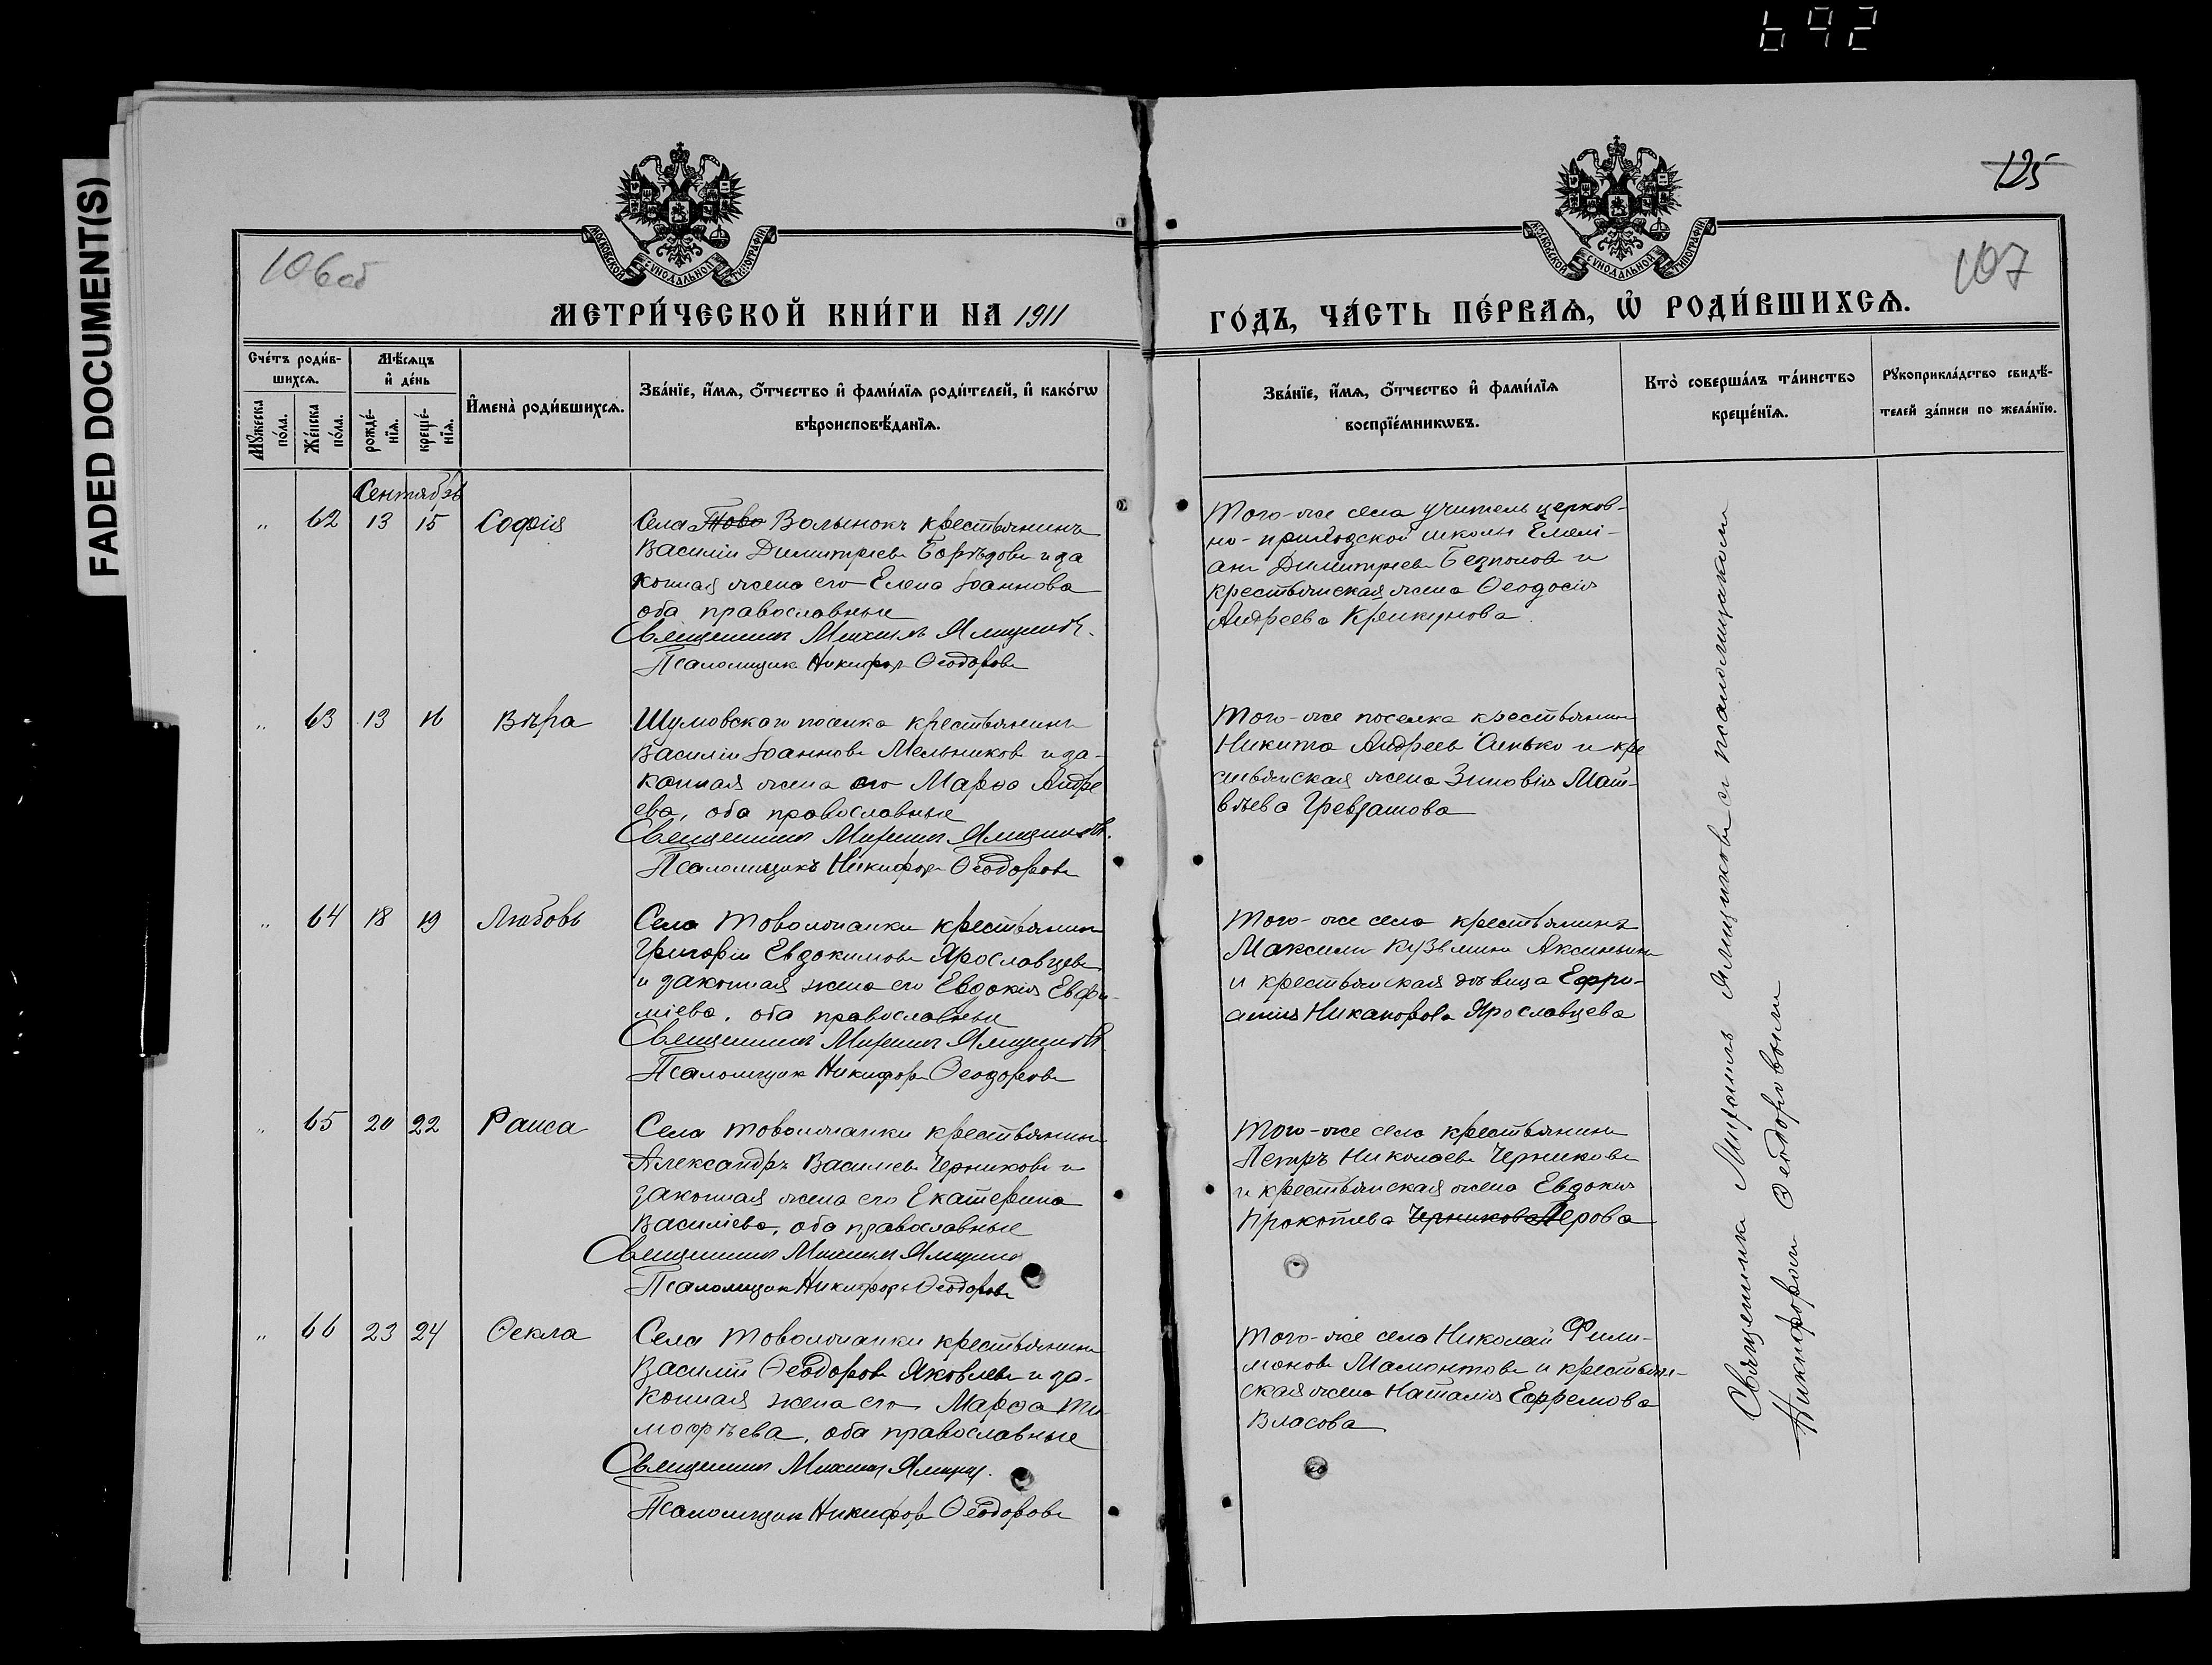 692
FADED DOCUMENT(S)
125
106об
107
МОСКОВСКОЙ СѴНОДАЛЬНОЙ ТИПОГРАФІИ
МОСКОВСКОЙ СѴНОДАЛЬНОЙ ТИПОГРАФІИ
МЕТРИ́ЧЕСКОЙ КНИ́ГИ НА 1911
ГО́ДЪ, ЧА́СТЬ ПЕ́РВАѦ, Ѽ РОДИ́ВШИХСѦ.
Сче́тъ роди́в-
шихсѧ.
Мꙋ́жеска по́ла.
Же́нска по́ла.
Мѣ́сѧцъ
и҆ де́нь
рожде́-
нїѧ.
креще́-
нїѧ.
И҆мена̀ роди́вшихсѧ.
Зва́нїе, и҆́мѧ, ѻ҆́тчество и҆ фами́лїѧ роди́телей, и҆ како́гѡ
вѣроисповѣ́данїѧ.
Зва́нїе, и҆́мѧ, ѻ҆́тчество и҆ фами́лїѧ
воспрїе́мникѡвъ.
Кто̀ соверша́лъ та́инство
креще́нїѧ.
Рꙋкоприкла́дство свидѣ́-
телей за́писи по жела́нїю.
Сентябрь
" 62 13 15 Софія
Села Тово Волынокъ крестьянинъ
Василій Димитріевъ и за
конная жена его Елена Іоаннова
оба православные
Священникъ Михаилъ Ямщиковъ.
Псаломщикъ Никифоръ Ѳеодоровъ
Того-же села учитель церков-
но-приходской школы Емелі-
анъ Димитріевъ и
крестьянская жена Ѳеодосія
Андреева Крикунова.
" 63 13 16 Вѣра
Шумовскаго поселка крестьянинъ
Василій Іоанновъ Мельниковъ и за-
конная жена его Марѳа Андре
ева, оба православные
Священникъ Михаилъ Ямщиковъ.
Псаломщикъ Никифоръ Ѳеодоровъ
Того-же поселка крестьянинъ
Никита Андреевъ и кре
стьянская жена Зиновія Мат-
вѣева
" 64 18 19 Любовь
Села Товолжанки крестьянинъ
Григорій Евдокимовъ Ярославцевъ
и законная жена его Евдокія Евфи-
міева, оба православные
Священникъ Михаилъ Ямщиковъ
Псаломщикъ Никифоръ Ѳеодоровъ
Того-же села крестьянинъ
Максимъ Кузьминъ Аксиньинъ
и крестьянская дѣвица Ефро-
синія Никанорова Ярославцева
" 65 20 22 Раиса
Села Товолжанки крестьянинъ
Александръ Васильевъ Черниковъ и
законная жена его Екатерина
Василіева, оба православные
Священникъ Михаилъ Ямщиковъ
Псаломщикъ Никифоръ Ѳеодоровъ
Того-же села крестьянинъ
Петръ Николаевъ Черниковъ
и крестьянская жена Евдокія
Прокопіева Черникова Перова
" 66 23 24 Ѳекла
Села Товолжанки крестьянинъ
Василій Ѳеодоровъ Яковлевъ и за-
конная жена его Марѳа Ти
моѳѣева, оба православные
Священникъ Михаилъ Ямщик.
Псаломщикъ Никифоръ Ѳеодоровъ
Того-же села Николай Фили-
моновъ Мамонтовъ и крестьян-
ская жена Наталія Ефремова
Власова
Священникъ Михаилъ Ямщиковъ съ псаломщикомъ
Никифоромъ Ѳеодоровымъ